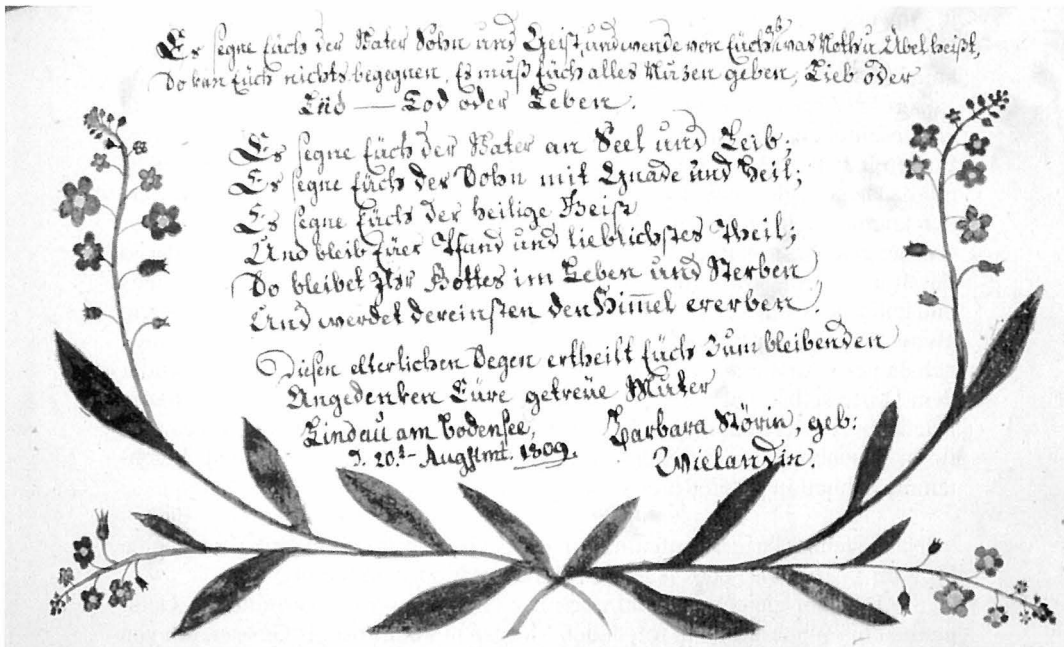 Es segne Eüch der Vater Sohn und Geist, und wende von Eüch ab was Noth u. Übel heißt,
So kan Eüch nichts begegnen, Es muß Eüch alles Nuzen geben, Lieb oder
Leid — Tod oder Leben.
Es segne Eüch der Vater an Seel und Leib;
Es segne Eüch der Sohn mit Gnade und Heil;
Es segne Eüch der heilige Geist
Und bleib Eüer Pfand und lieblichstes Theil;
So bleibet Ihr Gottes im Leben und Sterben
Und werdet dereinsten den Himmel ererben.
Diesen elterlichen Segen ertheilt Eüch zum bleibenden
Angedenken Eüre getreüe Mutter
Lindau am Bodensee, Barbara Störin, geb:
d. 20.t Augstmt. 1809. Wielandin.